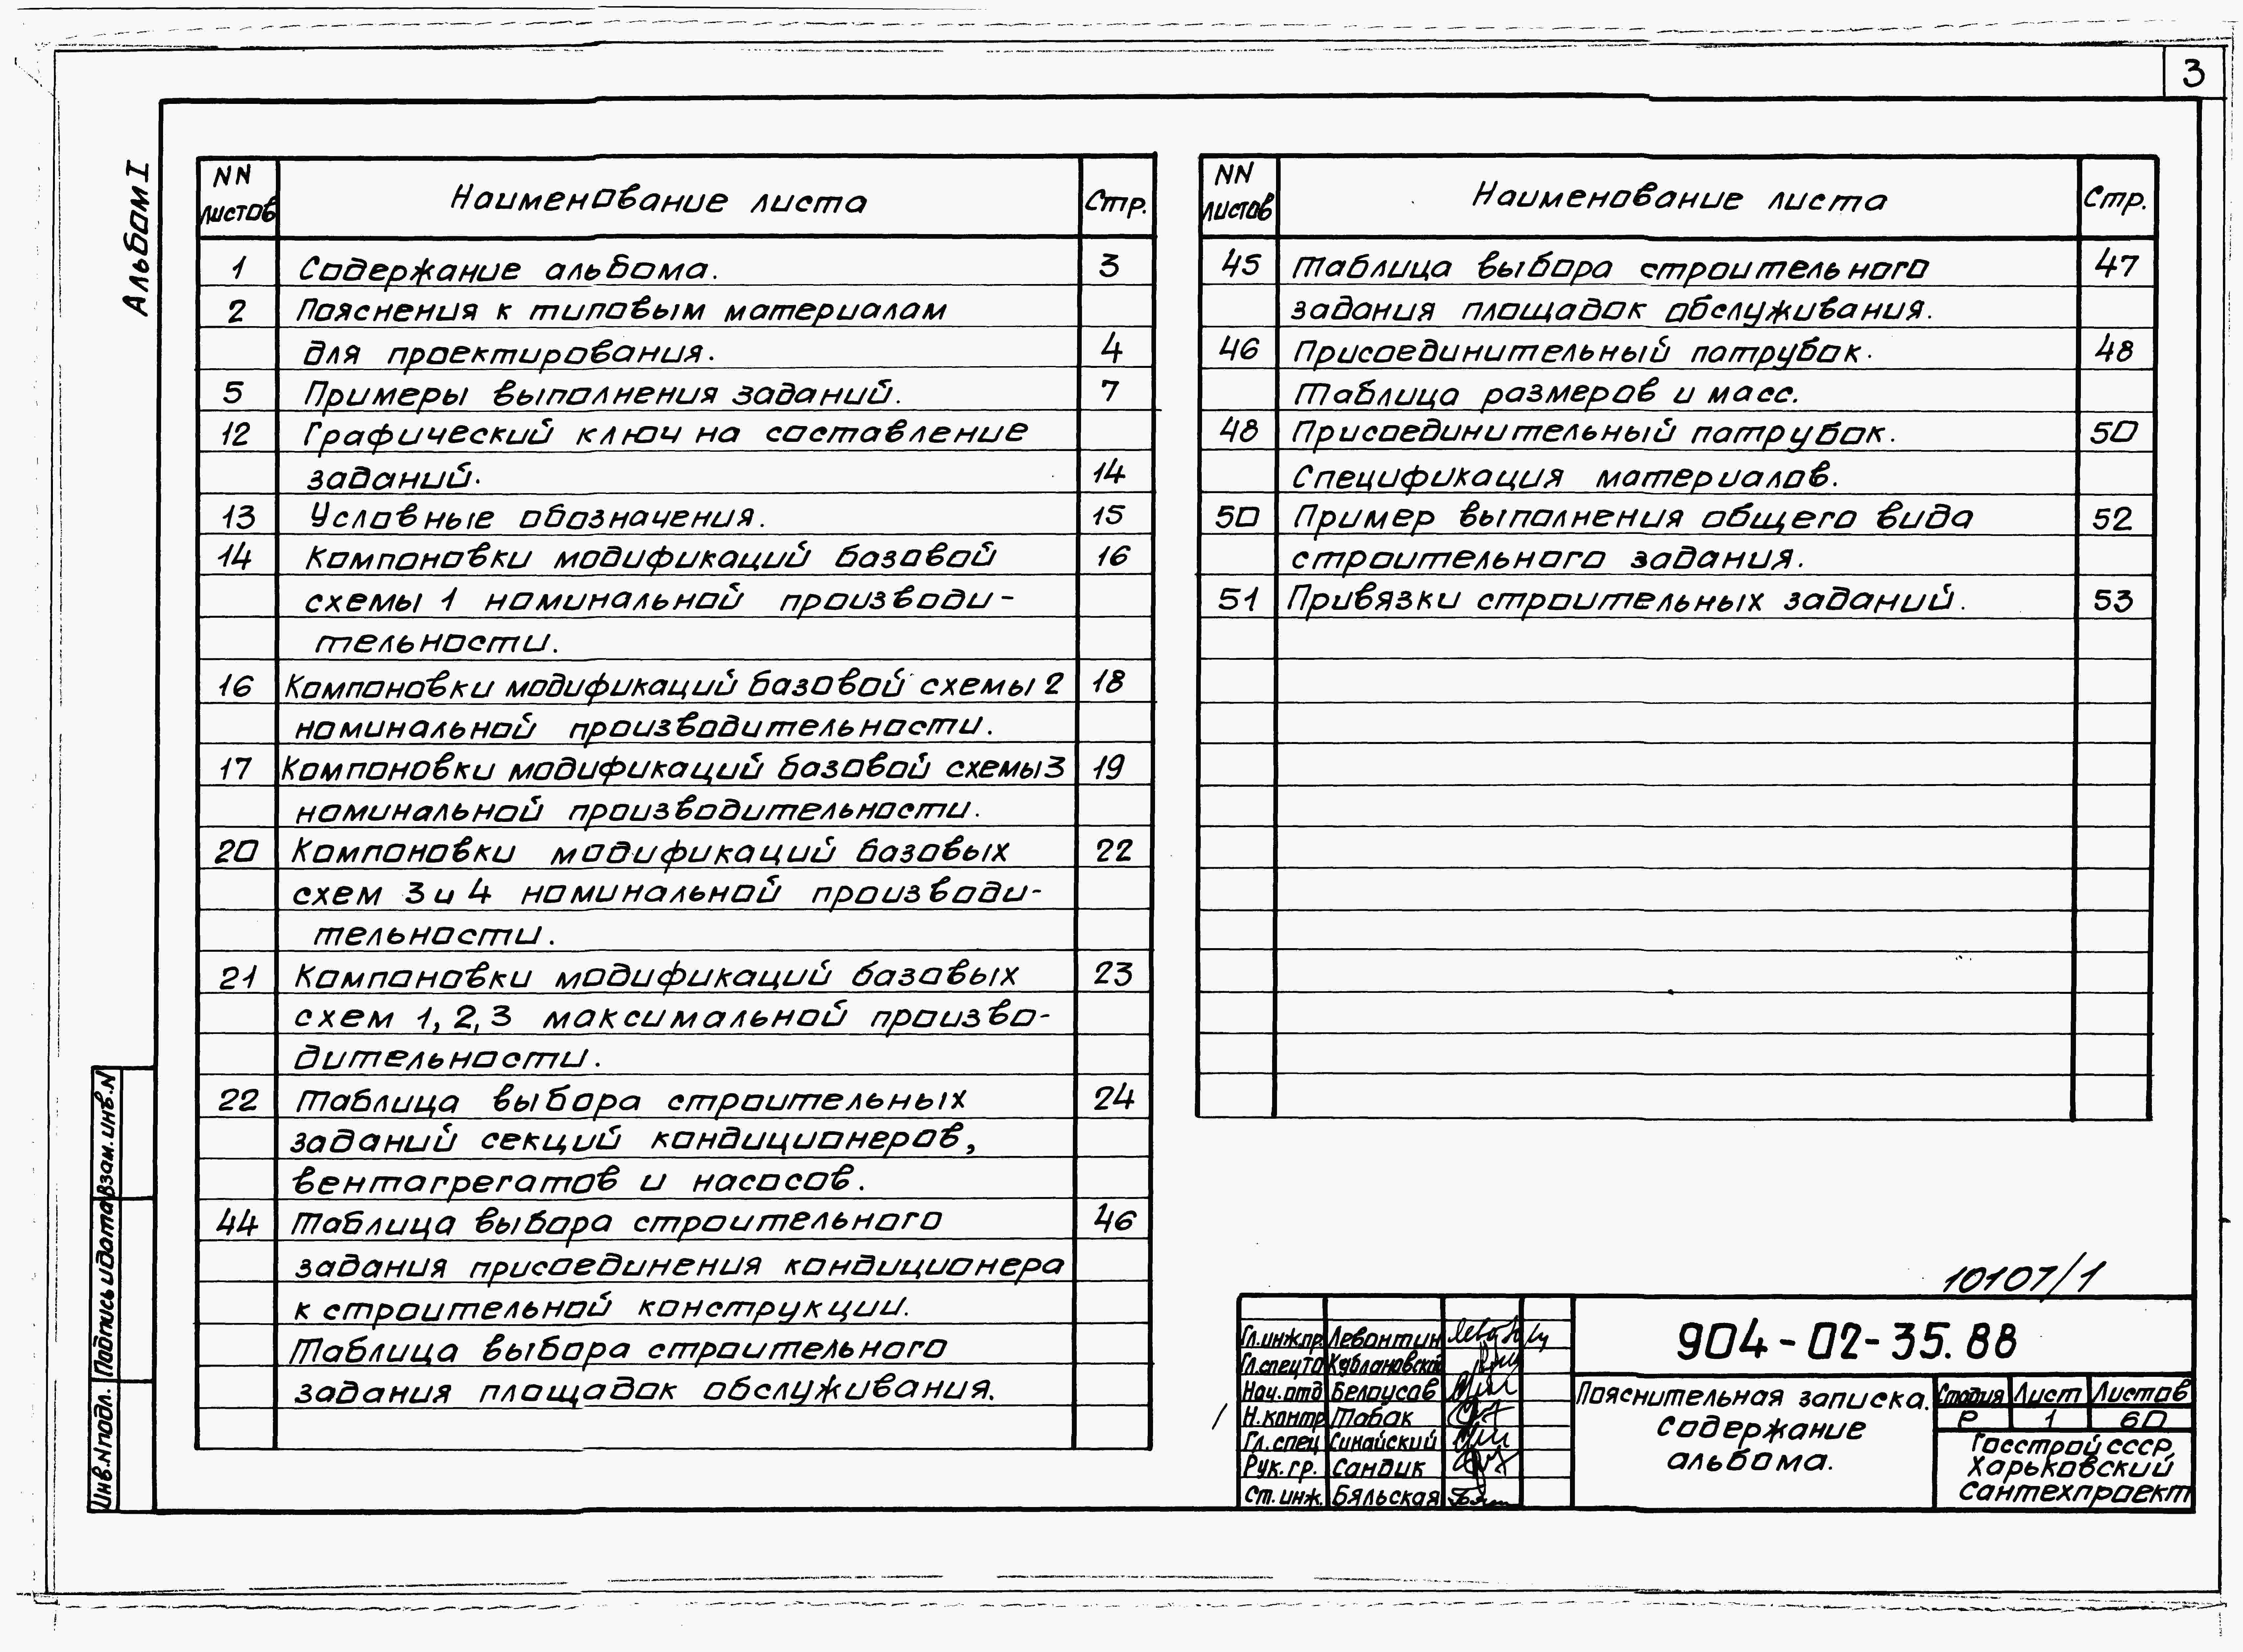 3
Альбом I
NN листов Наименование листа Стр.
1 Содержание альбома. 3
2 Пояснения к типовым материалам
для проектирования. 4
5 Примеры выполнения заданий. 7
12 Графический ключ на составление
заданий. 14
13 Условные обозначения. 15
14 Компоновки модификаций базовой 16
схемы 1 номинальной производи-
тельности.
16 Компоновки модификаций базовой схемы 2 18
номинальной производительности.
17 Компоновки модификаций базовой схемы 3 19
номинальной производительности.
20 Компоновки модификаций базовых 22
схем 3 и 4 номинальной производи-
тельности.
21 Компоновки модификаций базовых 23
схем 1, 2, 3 максимальной произво-
дительности.
22 Таблица выбора строительных 24
заданий секций кондиционеров,
вентагрегатов и насосов.
44 Таблица выбора строительного 46
задания присоединения кондиционера
к строительной конструкции.
Таблица выбора строительного
задания площадок обслуживания.
NN листов Наименование листа Стр.
45 Таблица выбора строительного 47
задания площадок обслуживания.
46 Присоединительный патрубок. 48
Таблица размеров и масс.
48 Присоединительный патрубок. 50
Спецификация материалов.
50 Пример выполнения общего вида 52
строительного задания.
51 Привязки строительных заданий. 53
Взам.инв.N
Подпись и дата
Инв.N подл.
10107/1
Гл.инж.пр. Левонтин
Гл.спец ТО Кублановский
Нач.отд Белоусов
Н.контр Табак
Гл.спец Синайский
Рук.гр. Сандик
Ст.инж. Бяльская
904-02-35.88
Пояснительная записка.
Содержание
альбома.
Стадия Лист Листов
Р 1 60
Госстрой СССР
Харьковский
Сантехпроект